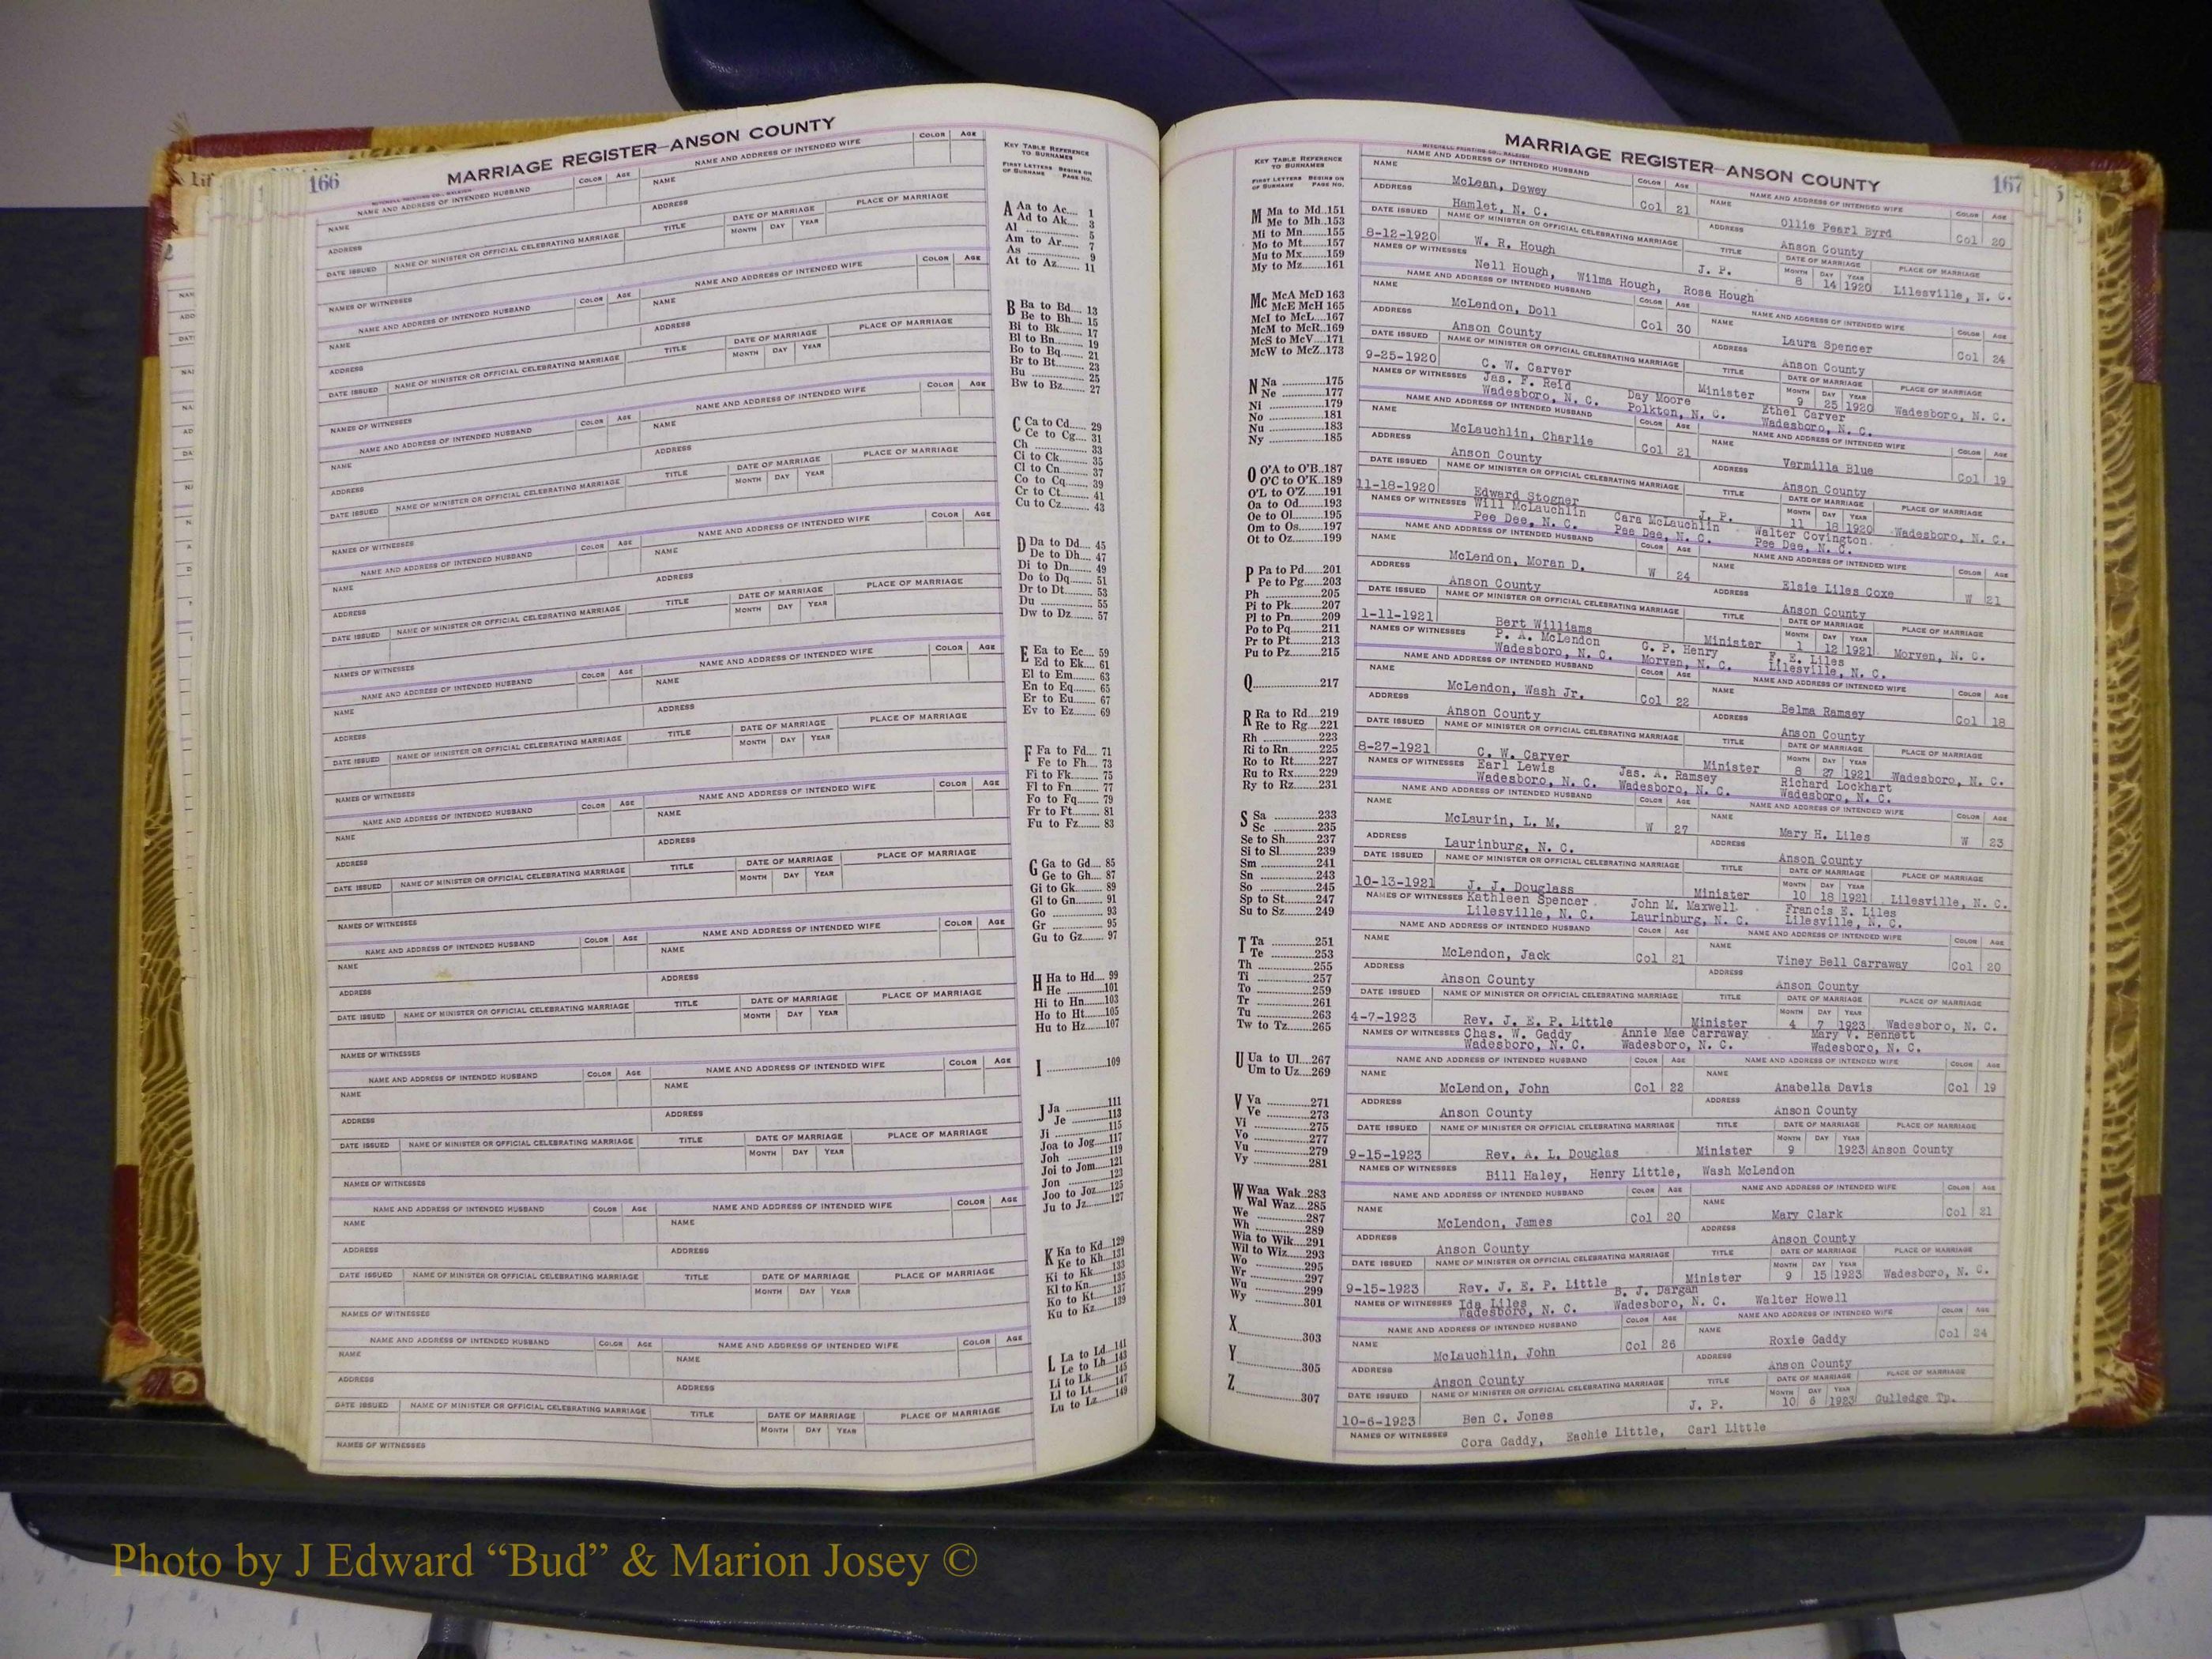 166
MARRIAGE REGISTER—ANSON COUNTY
NAME AND ADDRESS OF INTENDED HUSBAND COLOR AGE NAME AND ADDRESS OF INTENDED WIFE COLOR AGE
NAME NAME
ADDRESS ADDRESS
DATE ISSUED NAME OF MINISTER OR OFFICIAL CELEBRATING MARRIAGE TITLE DATE OF MARRIAGE PLACE OF MARRIAGE
MONTH DAY YEAR
NAMES OF WITNESSES
KEY TABLE REFERENCE TO SURNAMES
FIRST LETTERS OF SURNAME BEGINS ON PAGE NO.
A Aa to Ac.... 1
Ad to Ak.... 3
Al ............... 5
Am to Ar..... 7
As ............... 9
At to Az........ 11
B Ba to Bd.... 13
Be to Bh.... 15
Bi to Bk....... 17
Bl to Bn....... 19
Bo to Bq...... 21
Br to Bt....... 23
Bu .............. 25
Bw to Bz...... 27
C Ca to Cd..... 29
Ce to Cg.... 31
Ch .............. 33
Ci to Ck........ 35
Cl to Cn........ 37
Co to Cq....... 39
Cr to Ct........ 41
Cu to Cz....... 43
D Da to Dd.... 45
De to Dh.... 47
Di to Dn....... 49
Do to Dq...... 51
Dr to Dt....... 53
Du .............. 55
Dw to Dz...... 57
E Ea to Ec.... 59
Ed to Ek.... 61
El to Em...... 63
En to Eq...... 65
Er to Eu...... 67
Ev to Ez....... 69
F Fa to Fd.... 71
Fe to Fh.... 73
Fi to Fk........ 75
Fl to Fn........ 77
Fo to Fq....... 79
Fr to Ft........ 81
Fu to Fz....... 83
G Ga to Gd.... 85
Ge to Gh.... 87
Gi to Gk....... 89
Gl to Gn....... 91
Go .............. 93
Gr .............. 95
Gu to Gz...... 97
H Ha to Hd.... 99
He ............101
Hi to Hn......103
Ho to Ht......105
Hu to Hz......107
I ....................109
J Ja ............111
Je ............113
Ji ..............115
Joa to Jog.....117
Joh .............119
Joi to Jom.....121
Jon .............123
Joo to Joz.....125
Ju to Jz........127
K Ka to Kd...129
Ke to Kh...131
Ki to Kk.......133
Kl to Kn.......135
Ko to Kt.......137
Ku to Kz......139
L La to Ld...141
Le to Lh...143
Li to Lk.......145
Ll to Lt........147
Lu to Lz.......149
167
MARRIAGE REGISTER—ANSON COUNTY
KEY TABLE REFERENCE TO SURNAMES
FIRST LETTERS OF SURNAME BEGINS ON PAGE NO.
M Ma to Md..151
Me to Mh..153
Mi to Mn.......155
Mo to Mt.......157
Mu to Mx......159
My to Mz......161
Mc McA McD 163
McE McH 165
McI to McL....167
McM to McR..169
McS to McV....171
McW to McZ..173
N Na ............175
Ne ............177
Ni ..............179
No ..............181
Nu ..............183
Ny ..............185
O O'A to O'B..187
O'C to O'K..189
O'L to O'Z......191
Oa to Od........193
Oe to Ol.........195
Om to Os.......197
Ot to Oz.........199
P Pa to Pd......201
Pe to Pg......203
Ph ...............205
Pi to Pk.........207
Pl to Pn.........209
Po to Pq........211
Pr to Pt.........213
Pu to Pz........215
Q...................217
R Ra to Rd....219
Re to Rg....221
Rh ..............223
Ri to Rn........225
Ro to Rt........227
Ru to Rx.......229
Ry to Rz.......231
S Sa ............233
Sc ............235
Se to Sh.......237
Si to Sl.........239
Sm .............241
Sn ..............243
So ..............245
Sp to St........247
Su to Sz.......249
T Ta ............251
Te ............253
Th ..............255
Ti ...............257
To ..............259
Tr ..............261
Tu ..............263
Tw to Tz......265
U Ua to Ul....267
Um to Uz....269
V Va ............271
Ve ............273
Vi ..............275
Vo ..............277
Vu ..............279
Vy ..............281
W Waa Wak..283
Wal Waz....285
We .............287
Wh .............289
Wia to Wik....291
Wil to Wiz.....293
Wo .............295
Wr .............297
Wu .............299
Wy .............301
X ..................303
Y ..................305
Z ..................307
McLean, Dewey Col 21 Ollie Pearl Byrd Col 20
Hamlet, N. C. Anson County
8-12-1920 W. R. Hough J. P. 8 14 1920 Lilesville, N. C.
Nell Hough, Wilma Hough, Rosa Hough
McLendon, Doll Col 30 Laura Spencer Col 24
Anson County Anson County
9-25-1920 C. W. Carver Minister 9 25 1920 Wadesboro, N. C.
Jas. F. Reid Day Moore Ethel Carver
Wadesboro, N. C. Polkton, N. C. Wadesboro, N. C.
McLauchlin, Charlie Col 21 Vermilla Blue Col 19
Anson County Anson County
11-18-1920 Edward Stogner J. P. 11 18 1920 Wadesboro, N. C.
Will McLauchlin Cara McLauchlin Walter Covington
Pee Dee, N. C. Pee Dee, N. C. Pee Dee, N. C.
McLendon, Moran D. W 24 Elsie Liles Coxe W 21
Anson County Anson County
1-11-1921 Bert Williams Minister 1 12 1921 Morven, N. C.
P. A. McLendon G. P. Henry F. E. Liles
Wadesboro, N. C. Morven, N. C. Lilesville, N. C.
McLendon, Wash Jr. Col 22 Belma Ramsey Col 18
Anson County Anson County
8-27-1921 C. W. Carver Minister 8 27 1921 Wadesboro, N. C.
Earl Lewis Jas. A. Ramsey Richard Lockhart
Wadesboro, N. C. Wadesboro, N. C. Wadesboro, N. C.
McLaurin, L. M. W 27 Mary H. Liles W 23
Laurinburg, N. C. Anson County
10-13-1921 J. J. Douglass Minister 10 18 1921 Lilesville, N. C.
Kathleen Spencer John M. Maxwell Francis E. Liles
Lilesville, N. C. Laurinburg, N. C. Lilesville, N. C.
McLendon, Jack Col 21 Viney Bell Carraway Col 20
Anson County Anson County
4-7-1923 Rev. J. E. P. Little Minister 4 7 1923 Wadesboro, N. C.
Chas. W. Gaddy Annie Mae Carraway Mary V. Bennett
Wadesboro, N. C. Wadesboro, N. C. Wadesboro, N. C.
McLendon, John Col 22 Anabella Davis Col 19
Anson County Anson County
9-15-1923 Rev. A. L. Douglas Minister 9 1923 Anson County
Bill Haley, Henry Little, Wash McLendon
McLendon, James Col 20 Mary Clark Col 21
Anson County Anson County
9-15-1923 Rev. J. E. P. Little Minister 9 15 1923 Wadesboro, N. C.
Ida Liles B. J. Dargan Walter Howell
Wadesboro, N. C. Wadesboro, N. C.
McLauchlin, John Col 26 Roxie Gaddy Col 24
Anson County Anson County
10-6-1923 Ben C. Jones J. P. 10 6 1923 Gulledge Tp.
Cora Gaddy, Eachie Little, Carl Little
Photo by J Edward “Bud” & Marion Josey ©